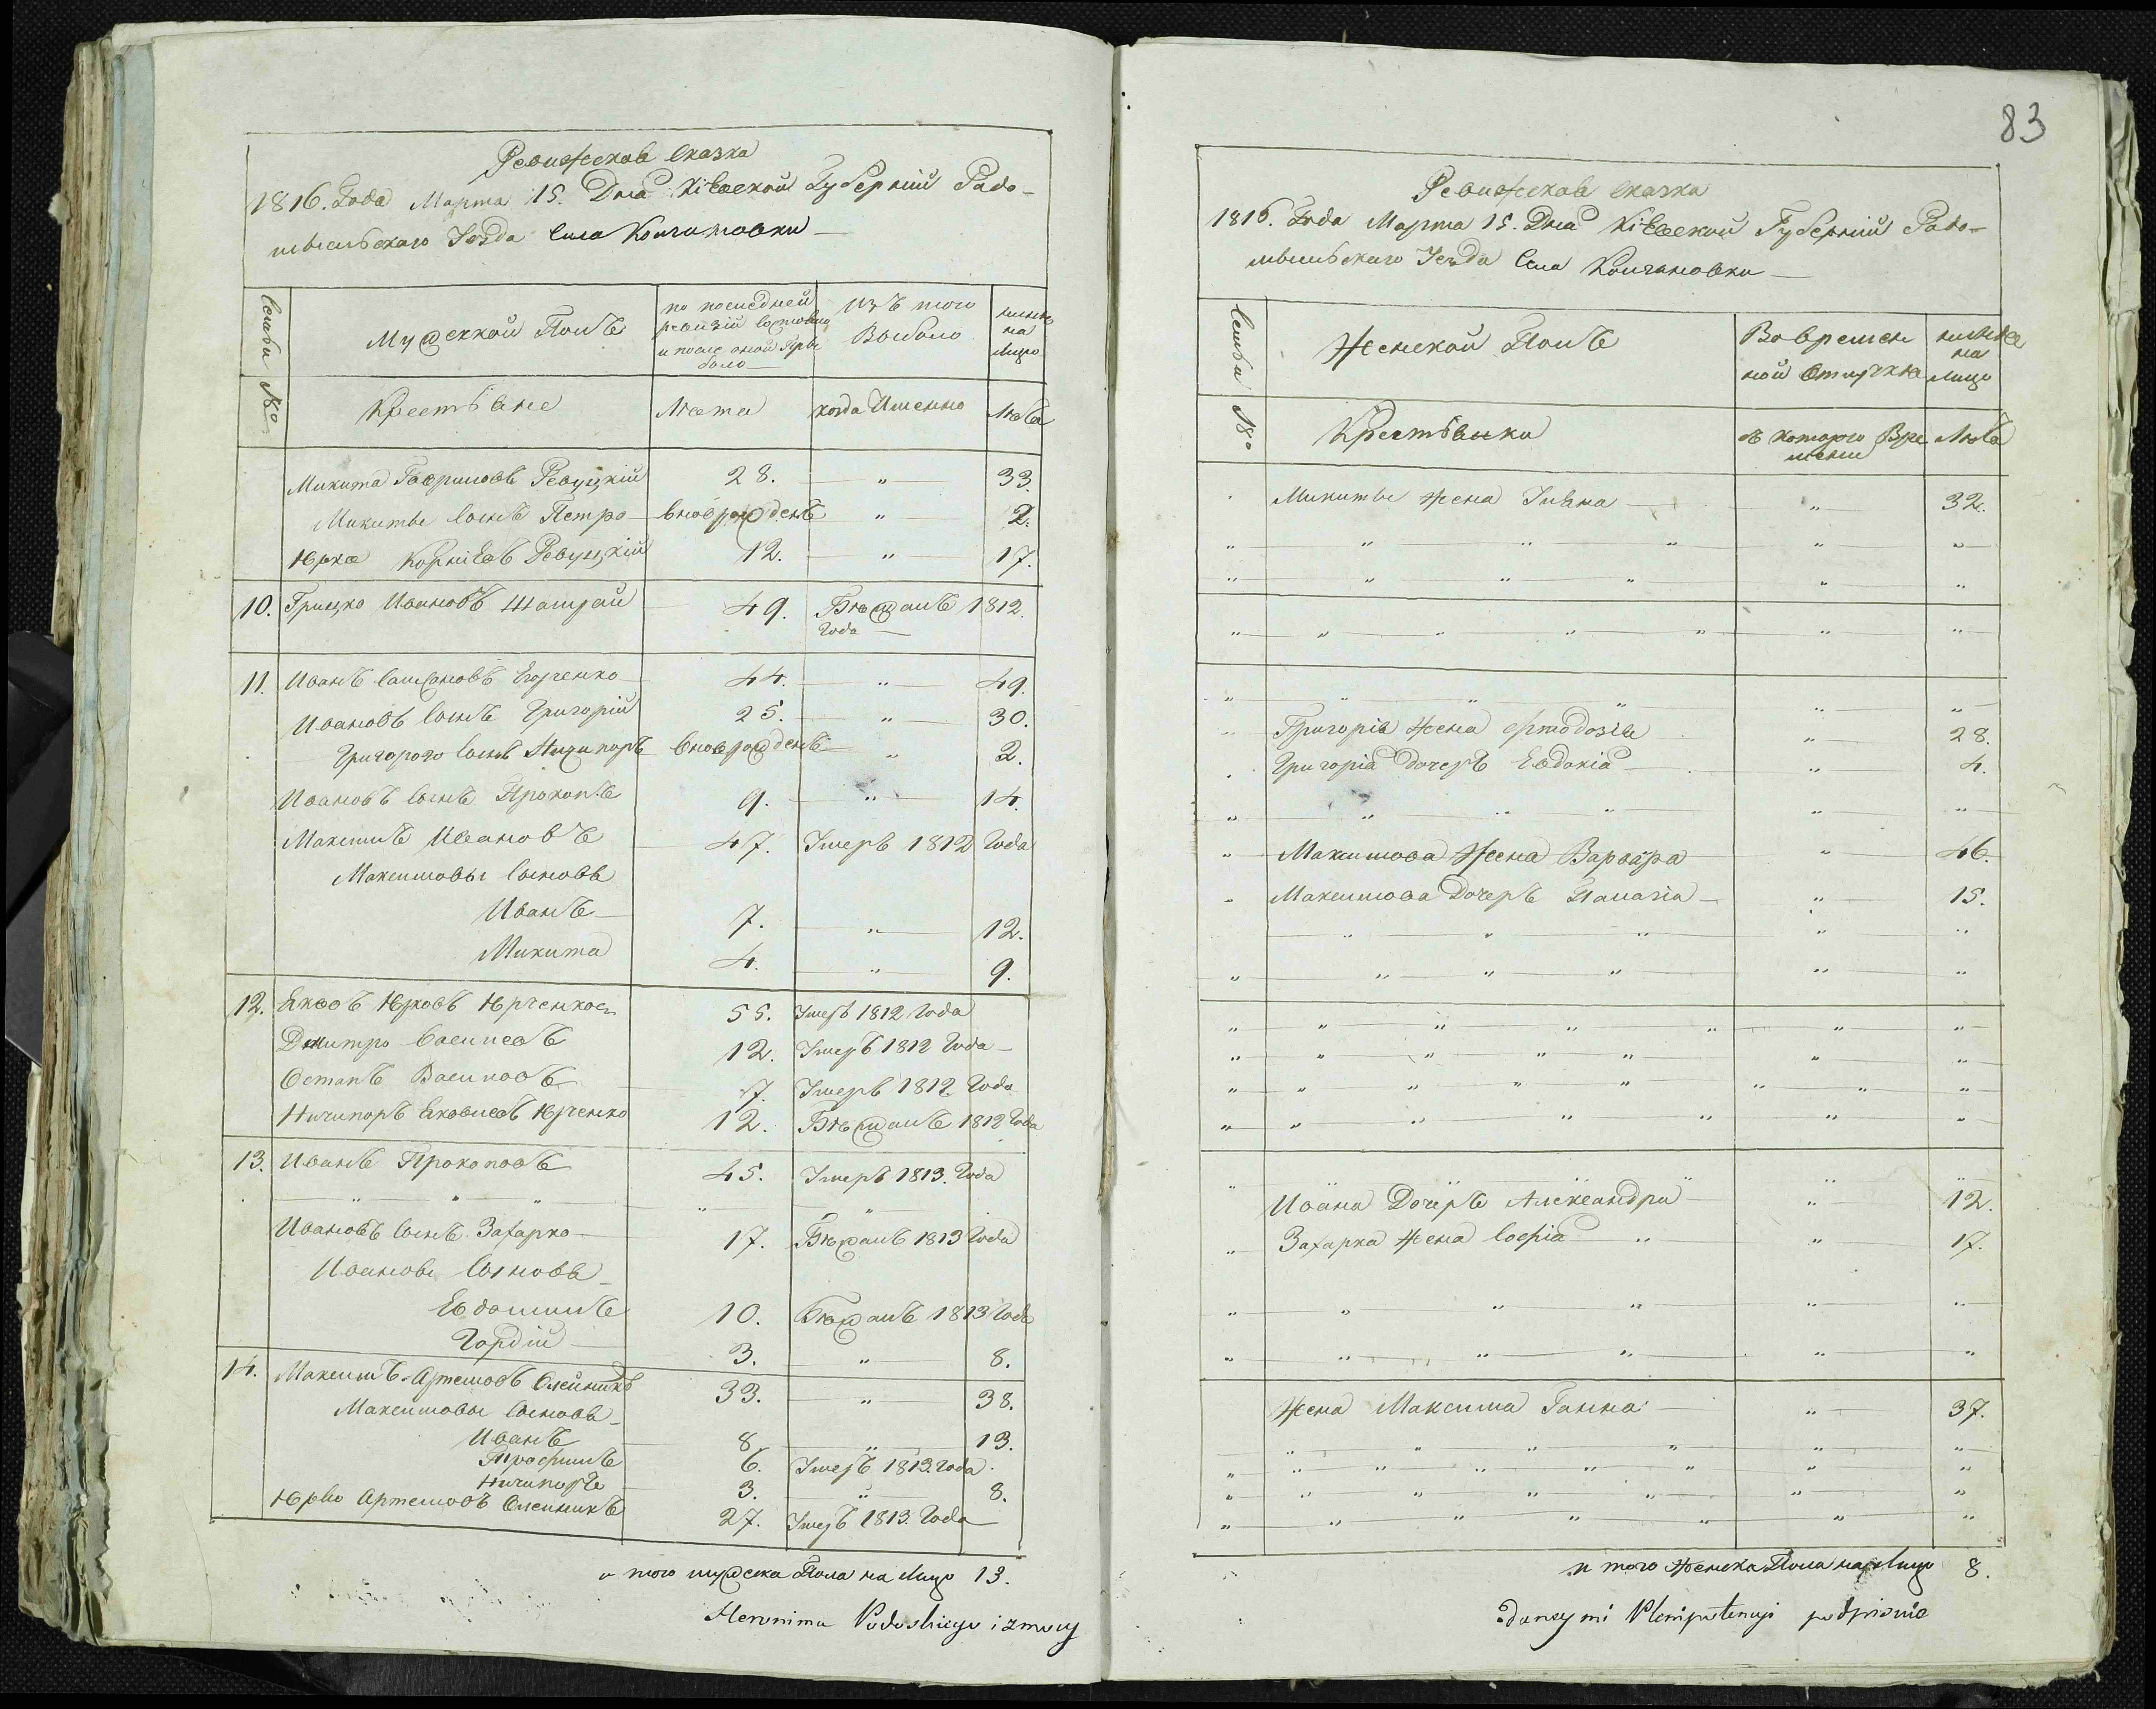 Ревижская сказка
1816. Года Марта 15. Дня Кіевской Губерніи Радо-
мысльскаго Уезда Села
Семьи №о
Мужеской Полъ
по последней
ревизіи состояло
и после оной прибыло
Изъ того
Выбыло
ныне
на
лицо
Крестьяне
Лета
когда Именно
Лета
Микита Гавриловъ Ревуцкій 28. " 33.
Микиты Сынъ Петро вновьрожденъ " 2.
Юрко Корніевъ Ревуцкій 12. " 17.
10. Грицко Ивановъ 49. Бежалъ 1812.
Года
11. Иванъ 44. " 49.
Ивановъ Сынъ Григорій 25. " 30.
Григорого Сынъ Ничипоръ вноврожденъ " 2.
Ивановъ Сынъ Прокопъ 9. " 14.
Максимъ Ивановъ 47. Умеръ 1812 Года
Максимовы Сыновя
Иванъ 7. " 12.
Микита 4. " 9.
12. Яковъ Юрковъ Юрченко 55. Умеръ 1812 Года
Дмитро Василевъ 12. Умеръ 1812 Года
Остапъ Василовъ 7. Умеръ 1812 Года
Ничипоръ Яковлевъ Юрченко 12. Бежалъ 1812 Года
13. Иванъ Прокоповъ 45. Умеръ 1813. Года
" " " " "
Ивановъ Сынъ Захарко 17. Бежалъ 1813 Года
Иванови Сыновя
Евдокимъ 10. Бежалъ 1813 Года
Гордій 3. " 8.
14. Максимъ Артемовъ Олейникъ 33. " 38.
Максимовы Сыновя
Иванъ 8. " 13.
Трофимъ 6. Умеръ 1813. Года
Ничипоръ 3. " 8.
Артемовъ Олейникъ 27. Умеръ 1813. Года
и того мужеска Пола на лицо 13.
Hieronima i z mocy
83
Ревижская сказка
1816. Года Марта 15. Дня Кіевской Губерніи Радо-
мысльскаго Уезда Села
Семьи №о
Женской Полъ
Во времен
ной отлучке
ныне
на
лицо
Крестьянки
съ котораго Вре
мени
Лета
Микиты жена Уляна " 32.
" " " " " "
" " " " " "
" " " " " " "
" " " " " "
" Григорія жена Фтодозія " 28.
Григорія дочеръ Евдокія " 4.
" " " " " "
" Максимова Жена Варвара " 46.
Максимова Дочеръ Палагія " 15.
" " " " "
" " " " " "
" " " " " " "
" " " " " " "
" " " " " " " "
" " " " " " "
" " " " " "
Ивана Дочеръ Александра " 12.
" Захарка Жена Софія " " 17.
" " " " " "
" " " " " "
Жена Максима Ганна " 37.
" " " " " "
" " " " " " " "
" " " " " " "
" " " " " " "
и того Женска Пола на Лицо 8.
daney mi Plenipotencyi podpisuie